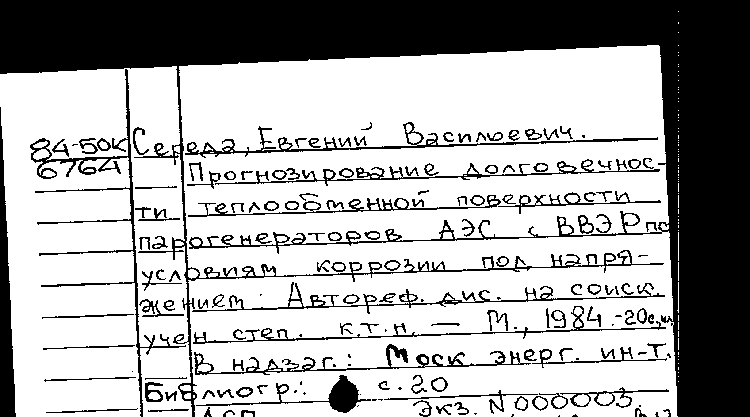 84-50К Середа, Евгений Василоевич.
6764 Прогнозирование долговечнос-
ти теплообменной поверхности
парогенераторов АЭС с ВВЭР по
условиям коррозии под напря-
жением: Автореф. дис. на соиск.
учен. степ. к.т.н. — М., 1984.-20с.,
В надзаг.: Моск. энерг. ин-т.
Библиогр.: с.20
ДСП Экз. N000003.